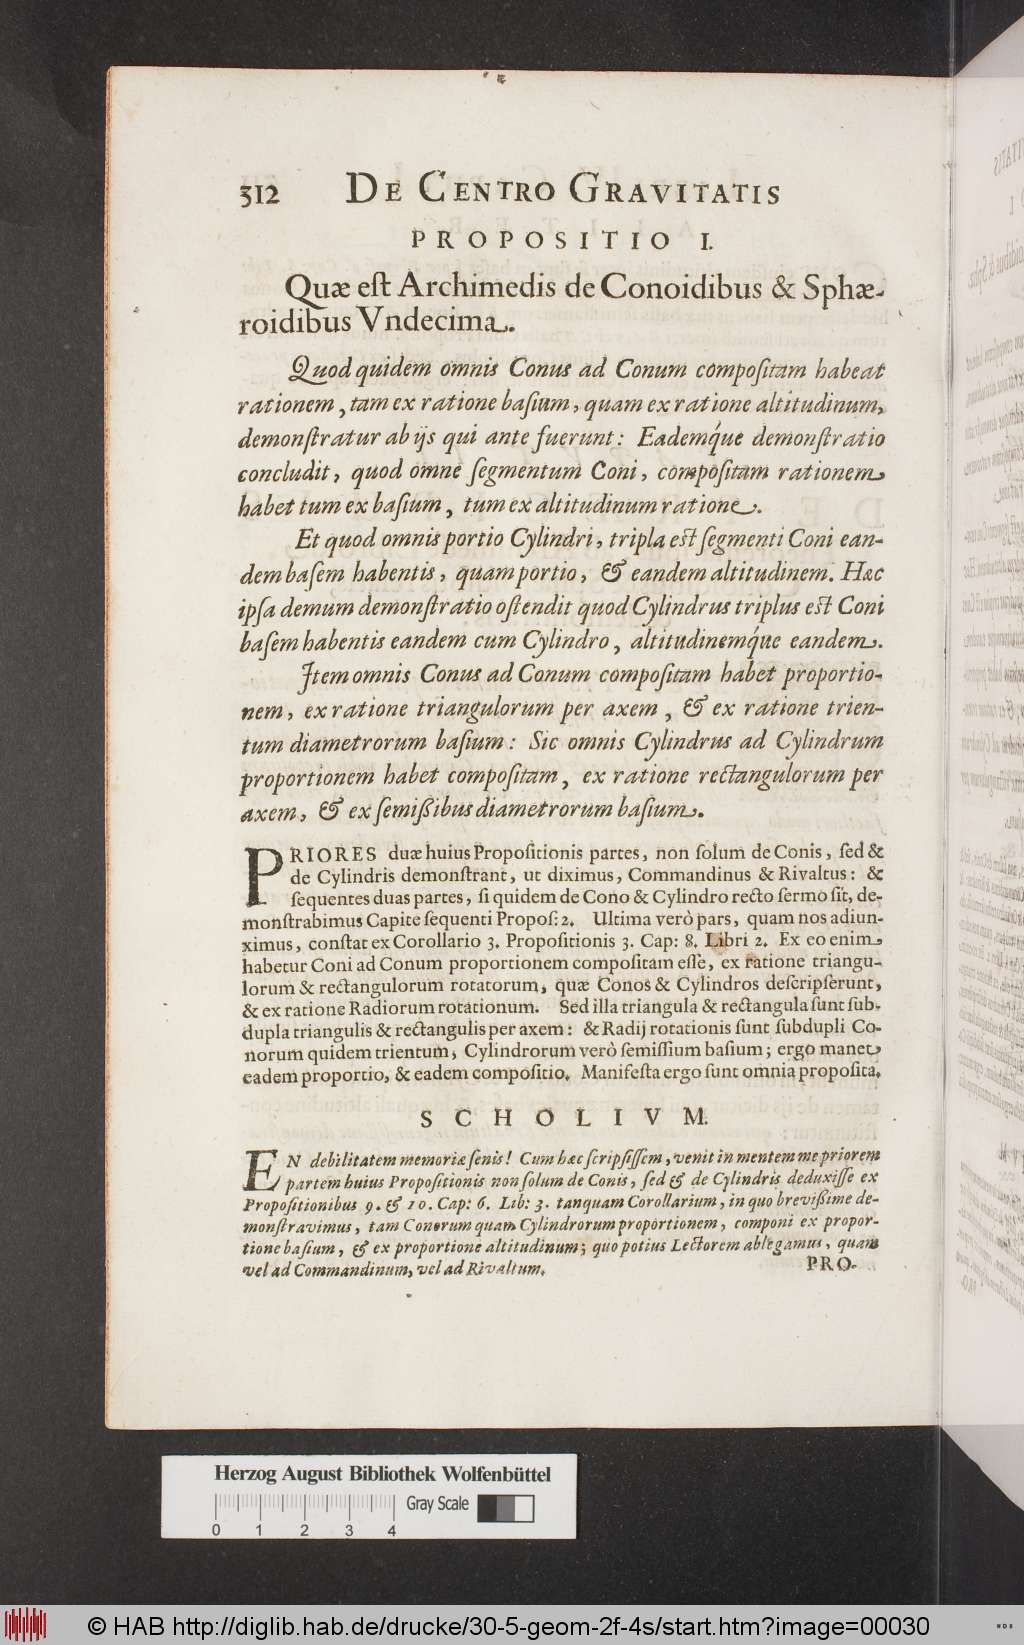 312 DE CENTRO GRAVITATIS
PROPOSITIO I.
Quæ est Archimedis de Conoidibus & Sphæ-
roidibus Vndecima.
Quod quidem omnis Conus ad Conum compositam habeat
rationem, tam ex ratione basium, quam ex ratione altitudinum,
demonstratur ab ijs qui ante fuerunt: Eademq́ue demonstratio
concludit, quod omne segmentum Coni, compositam rationem
habet tum ex basium, tum ex altitudinum ratione.
Et quod omnis portio Cylindri, tripla est segmenti Coni ean-
dem basem habentis, quam portio, & eandem altitudinem. Hæc
ipsa demum demonstratio ostendit quod Cylindrus triplus est Coni
basem habentis eandem cum Cylindro, altitudinemq́ue eandem.
Item omnis Conus ad Conum compositam habet proportio-
nem, ex ratione triangulorum per axem, & ex ratione trien-
tum diametrorum basium: Sic omnis Cylindrus ad Cylindrum
proportionem habet compositam, ex ratione rectangulorum per
axem, & ex semißibus diametrorum basium.
PRIORES duæ huius Propositionis partes, non solum de Conis, sed &
de Cylindris demonstrant, ut diximus, Commandinus & Rivaltus: &
sequentes duas partes, si quidem de Cono & Cylindro recto sermo sit, de-
monstrabimus Capite sequenti Propos: 2. Ultima verò pars, quam nos adiun-
ximus, constat ex Corollario 3. Propositionis 3. Cap: 8. Libri 2. Ex eo enim
habetur Coni ad Conum proportionem compositam esse, ex ratione triangu-
lorum & rectangulorum rotatorum, quæ Conos & Cylindros descripserunt,
& ex ratione Radiorum rotationum. Sed illa triangula & rectangula sunt sub-
dupla triangulis & rectangulis per axem: & Radij rotationis sunt subdupli Co-
norum quidem trientum, Cylindrorum verò semissium basium; ergo manet
eadem proportio, & eadem compositio. Manifesta ergo sunt omnia proposita.
SCHOLIVM.
EN debilitatem memoriæ senis! Cum hæc scripsissem, venit in mentem me priorem
partem huius Propositionis non solum de Conis, sed & de Cylindris deduxisse ex
Propositionibus 9. & 10. Cap: 6. Lib: 3. tanquam Corollarium, in quo brevißime de-
monstravimus, tam Conorum quam Cylindrorum proportionem, componi ex propor-
tione basium, & ex proportione altitudinum; quo potius Lectorem ablegamus, quam
vel ad Commandinum, vel ad Rivaltum.
PRO-
Herzog August Bibliothek Wolfenbüttel
Gray Scale
0 1 2 3 4
© HAB http://diglib.hab.de/drucke/30-5-geom-2f-4s/start.htm?image=00030